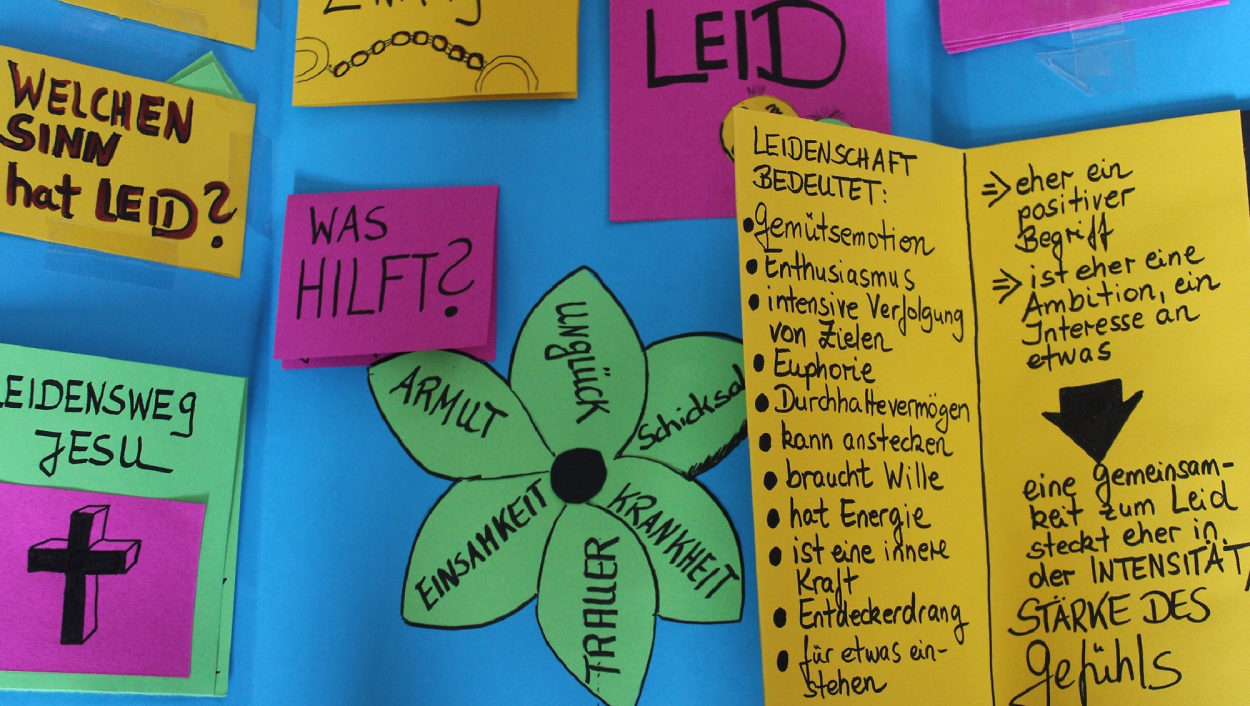 WELCHEN
SINN
hat LEID?
LEID
WAS
HILFT?
LEIDENSWEG
JESU
UNGLÜCK
ARMUT
Schicksal
EINSAMKEIT
KRANKHEIT
TRAUER
LEIDENSCHAFT
BEDEUTET:
• Gemütsemotion
• Enthusiasmus
• intensive Verfolgung
von Zielen
• Euphorie
• Durchhaltevermögen
• kann anstecken
• braucht Wille
• hat Energie
• ist eine innere
Kraft
• Entdeckerdrang
• für etwas ein-
stehen
⇒ eher ein
positiver
Begriff
⇒ ist eher eine
Ambition, ein
Interesse an
etwas
eine Gemeinsam-
keit zum Leid
steckt eher in
der INTENSITÄT/
STÄRKE DES
Gefühls